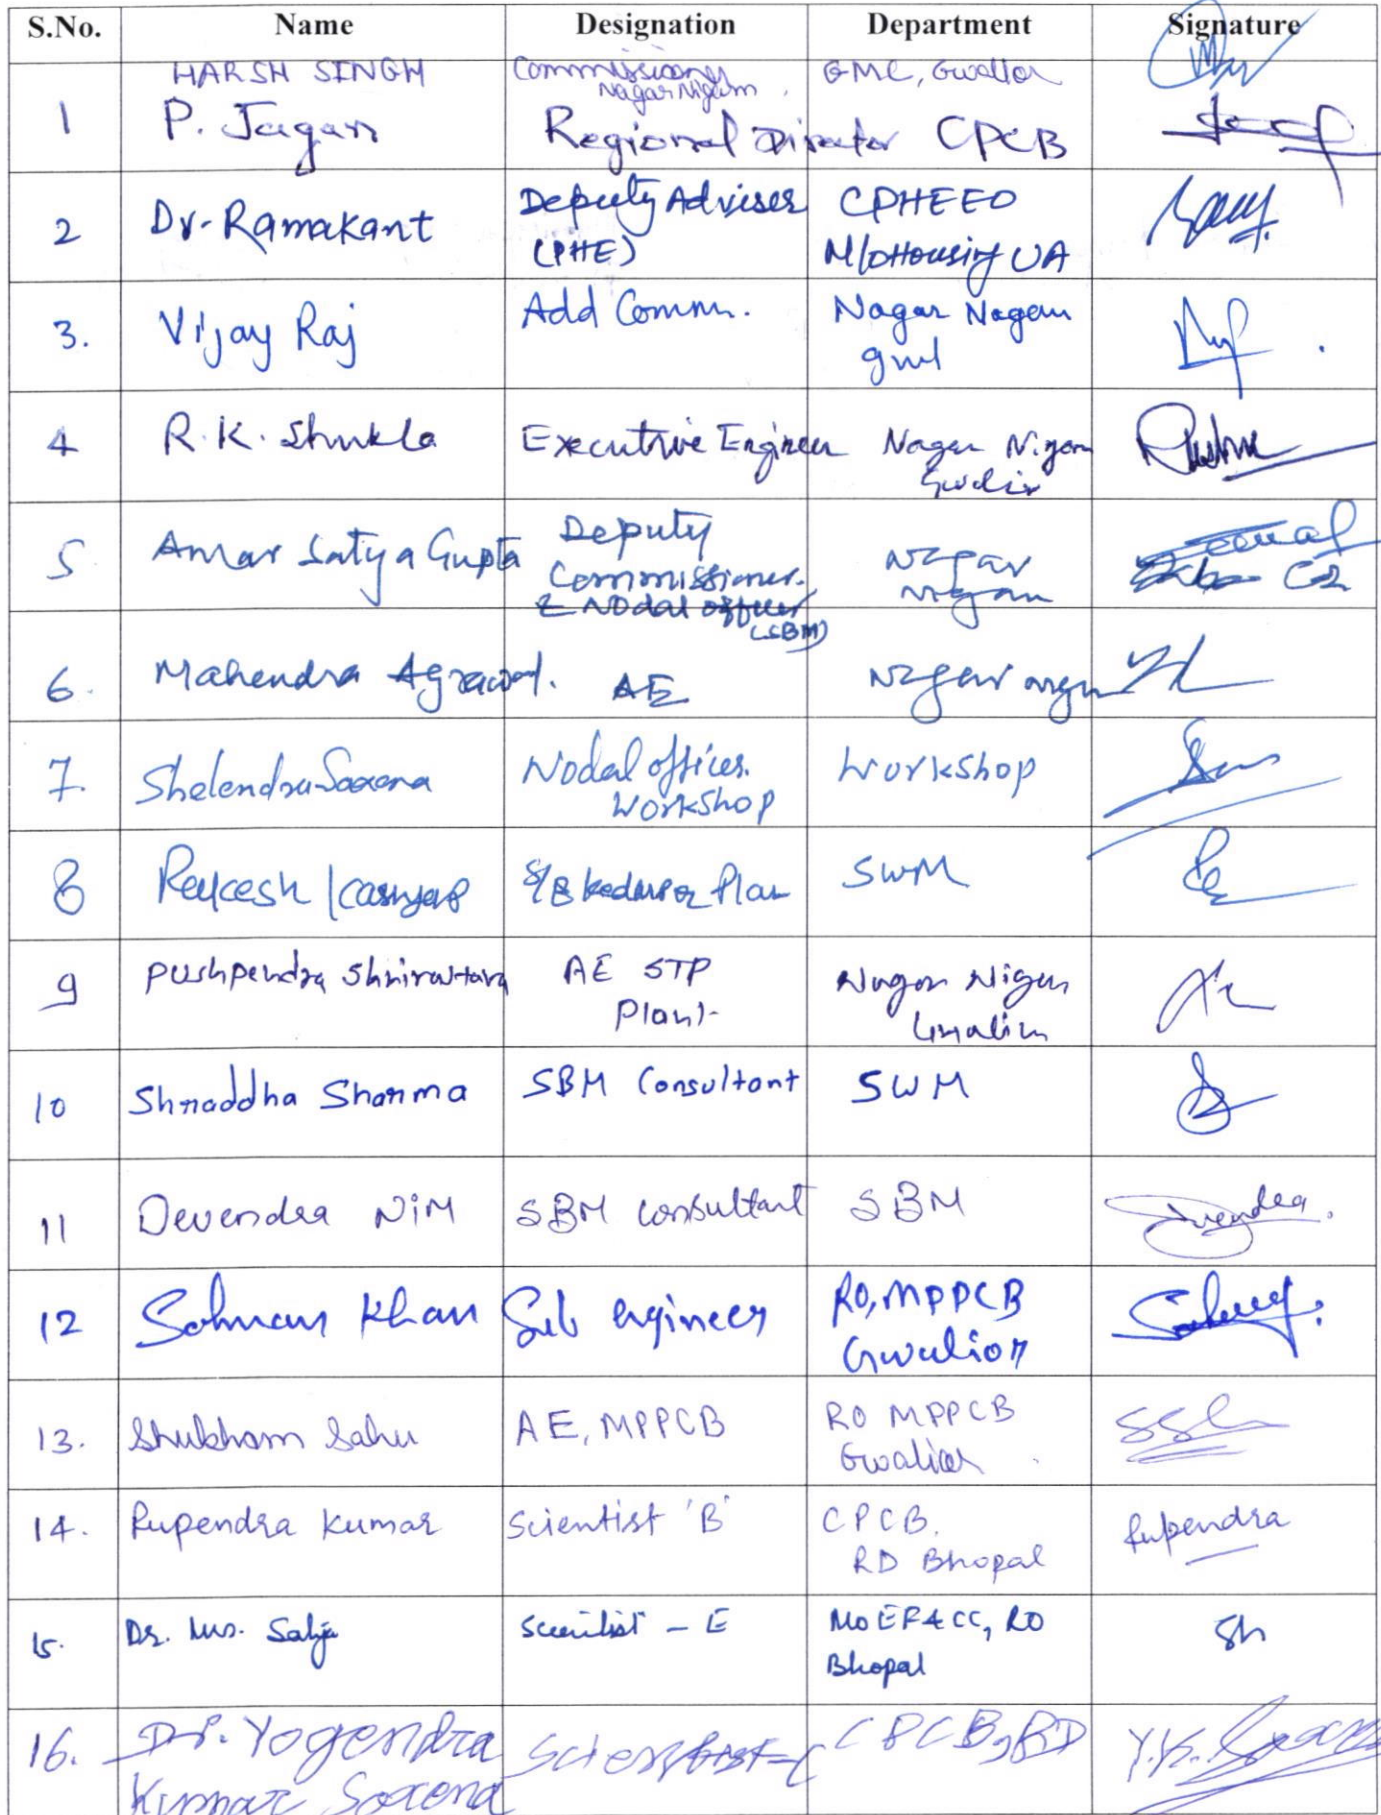 S.No. Name Designation Department Signature
HARSH SINGH Commissioner GMC, Gwalior
Nagar Nigam
1 P. Jagan Regional Director CPCB
2 Dr. Ramakant Deputy Adviser CPHEEO
(PHE) M/o Housing UA
3. Vijay Raj Add Comm. Nagar Nagam
gwl
4 R.K. Shukla Executive Engineer Nagar Nigam
Gwalior
5 Amar Satya Gupta Deputy Nagar
Commissioner. Nigam
& Nodal officer
(SBM)
6. Mahendra Agrawal. AE Nagar
7. Shelendra Saxena Nodal officer. Workshop
Workshop
8 Rakesh Kashyap Plan SWM
9 Pushpendra Shrivastava AE STP Nagar Nigam
Plant Gwalior
10 Shraddha Sharma SBM Consultant SWM
11 Devendra NIM SBM consultant SBM Devendra.
12 Salman Khan Sub engineer RO, MPPCB
Gwalior
13. Shubham Sahu AE, MPPCB RO MPPCB
Gwalior
14. Rupendra Kumar Scientist 'B' CPCB. Rupendra
RD Bhopal
15. Dr. Scientist - E MoEF&CC, RO Sh
Bhopal
16. Dr. Yogendra Scientist-C CPCB, RD Y.K. Saxena
Kumar Saxena